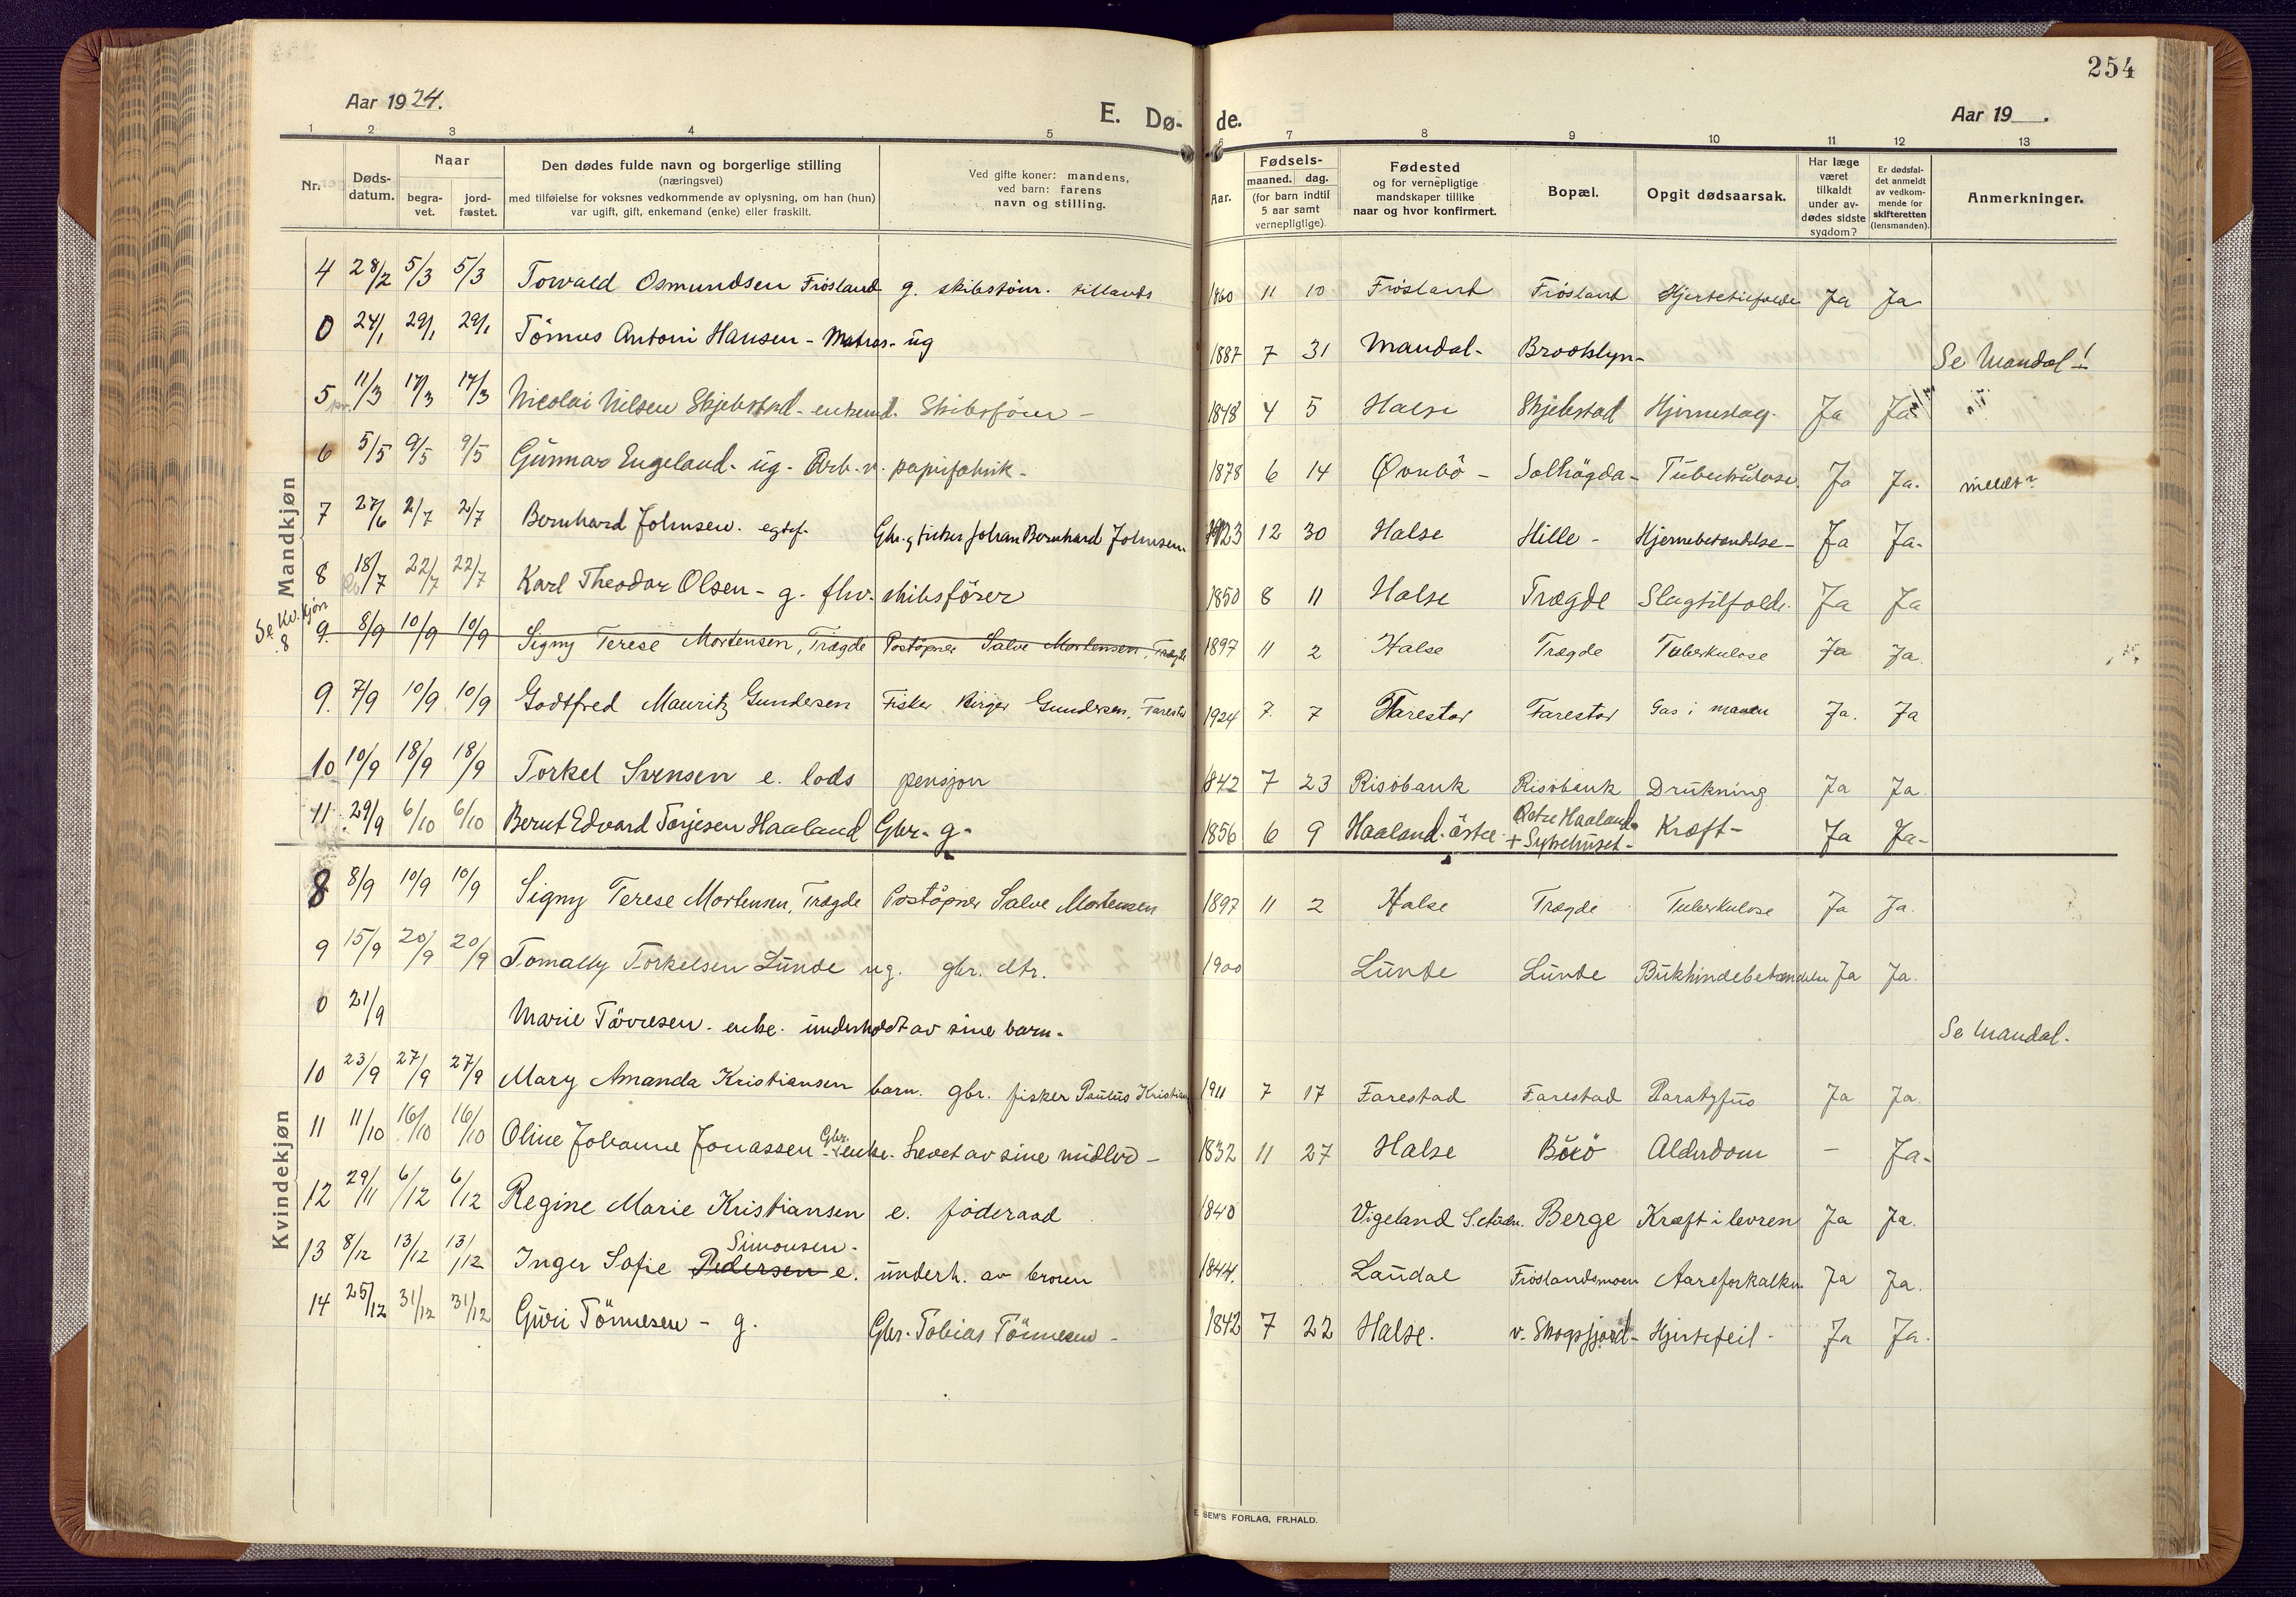 254
Aar 1924.
E. Dø- de.
Aar 19__.
1 2 3 4 5 6 7 8 9 10 11 12 13
Nr.
Døds-datum.
Naar
begra-vet.
jord-fæstet.
Den dødes fulde navn og borgerlige stilling
(næringsvei)
med tilføielse for voksnes vedkommende av oplysning, om han (hun)
var ugift, gift, enkemand (enke) eller fraskilt.
Ved gifte koner: mandens,
ved barn: farens
navn og stilling.
Aar.
Fødsels-
maaned. dag.
(for barn indtil
5 aar samt
vernepligtige).
Fødested
og for vernepligtige
mandskaper tillike
naar og hvor konfirmert.
Bopæl.
Opgit dødsaarsak.
Har læge
været
tilkaldt
under av-
dødes sidste
sygdom?
Er dødsfal-
det anmeldt
av vedkom-
mende for
skifteretten
(lensmanden).
Anmerkninger.
Mandkjøn
4 28/2 5/3 5/3 Torvald Osmundsen Frösland g. skibstöm. tillands 1860 11 10 Frösland Frösland Hjertetilfælde Ja Ja
0 24/1 29/1 29/1 Tönnes Antoni Hansen - Matros - ug 1887 7 31 Mandal - Brooklyn - Se Mandal!
5 11/3 17/3 17/3 Nicolai Nilsen Skjebstad - enkemd. Skibstöm - 1848 4 5 Halse Skjebstad Hjerneslag. Ja Ja
6 5/5 9/5 9/5 Gunnar Engeland - ug - Arb. v. papirfabrik - 1878 6 14 Øvrebö - Solhögda - Tuberkulose. Ja Ja. meldt
7 27/6 2/7 2/7 Bernhard Johnsen. egtef. Gbr. g fisker Johan Bernhard Johnsen 1923 12 30 Halse Hille - Hjernebetændelse - Ja Ja -
8 18/7 22/7 22/7 Karl Theodor Olsen - g. fhv. skibsförer 1850 8 11 Halse Trægde Slagtilfælde. Ja Ja
Se Kv.kjøn 8
9. 8/9 10/9 10/9 Signy Terese Mortensen, Trægde Postöpner Salve Mortensen, Trægde 1897 11 2 Halse Trægde Tuberkulose Ja Ja
9. 7/9 10/9 10/9 Godtfred Mauritz Gundersen Fisker Birger Gundersen, Farestad 1924 7. 7 Farestad Farestad Gas i maven Ja. Ja
10 10/9 18/9 18/9 Torkel Svensen e. lods pensjon 1842 7 23 Risöbank Risöbank Drukning Ja Ja
11. 29/9 6/10 6/10 Bernt Edvard Torjesen Haaland Gbr. g - 1856 6 9 Haaland östre Östre Haaland + Sykehuset - Kræft - Ja Ja -
Kvindekjøn
8 8/9 10/9 10/9 Signy Terese Mortensen, Trægde Postöpner Salve Mortensen 1897 11 2 Halse Trægde Tuberkulose Ja Ja.
9 15/9 20/9 20/9 Tomally Torkelsen Lunde ug. gbr. dtr. 1900 Lunde Lunde Bukhindebetændelse Ja Ja.
0 21/9 Marie Tönnesen. enke. underholdt av sine barn. Se Mandal.
10 23/9 27/9 27/9 Mary Amanda Kristiansen barn. gbr. fisker Paulus Kristian 1911 7 17 Farestad Farestad Paratyfus Ja Ja.
11 11/10 16/10 16/10 Oline Johanne Jonassen Gbr. enke. Levet av sine midler - 1832 11 27 Halse Buö Alderdom - Ja -
12 29/11 6/12 6/12 Regine Marie Kristiansen e. föderaad 1840 Vigeland S. Berge Kræft i levren Ja Ja.
13 8/12 13/12 13/12 Inger Sofie Pedersen Simonsen. e. underh. av broren 1844. Laudal Fröslandsmoen Aareforkalkn. Ja Ja.
14 25/12 31/12 31/12 Guri Tönnesen - g. Gbr. Tobias Tönnesen - 1842 7 22 Halse. v. Skogsfjord - Hjertefeil - Ja Ja.
E. SEM'S FORLAG, FR.HALD.